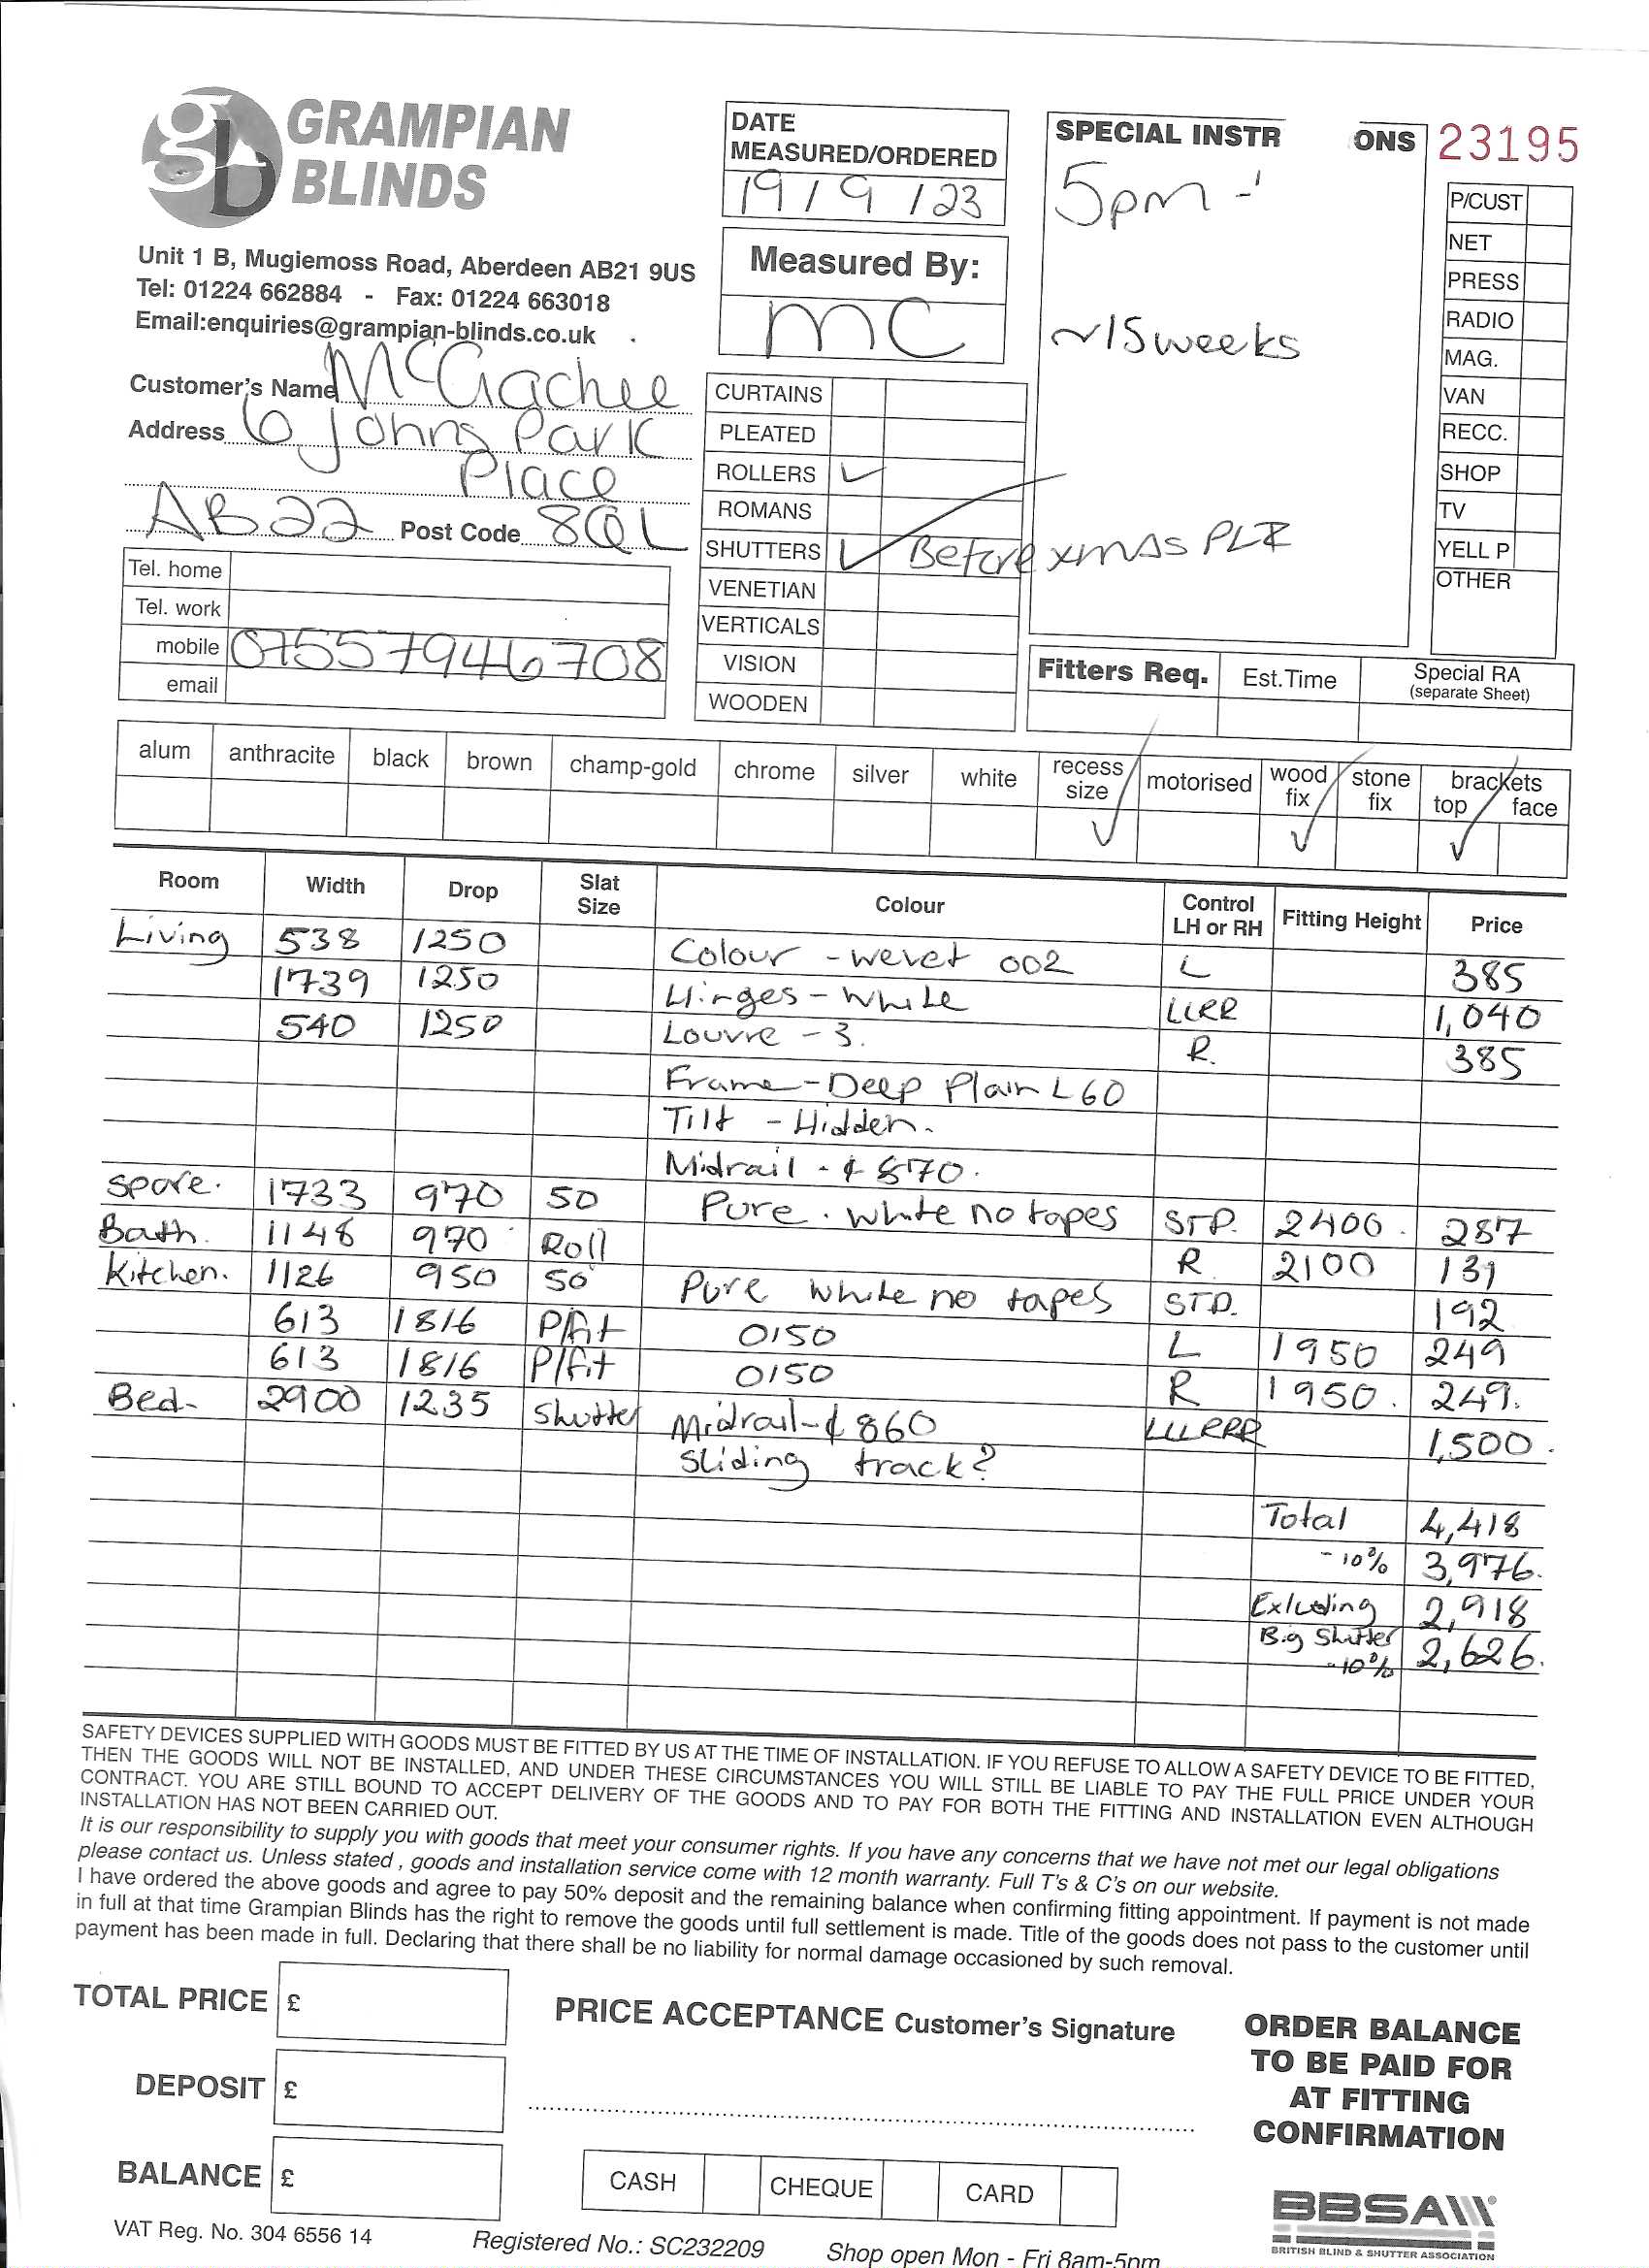 GRAMPIAN
BLINDS
Unit 1 B, Mugiemoss Road, Aberdeen AB21 9US
Tel: 01224 662884 - Fax: 01224 663018
Email:enquiries@grampian-blinds.co.uk
DATE
MEASURED/ORDERED
19/9/23
Measured By:
MC
SPECIAL INSTR ONS 23195
5pm -
~15 weeks
Before xmas PLZ
P/CUST
NET
PRESS
RADIO
MAG.
VAN
RECC.
SHOP
TV
YELL P
OTHER
Customer's Name McGachie
Address 6 Johns Park
Place
AB22 Post Code 8QL
Tel. home
Tel. work
mobile 07557946708
email
CURTAINS
PLEATED
ROLLERS ✓
ROMANS
SHUTTERS ✓
VENETIAN
VERTICALS
VISION
WOODEN
Fitters Req. Est.Time Special RA
(separate Sheet)
alum anthracite black brown champ-gold chrome silver white recess size ✓ motorised wood fix ✓ stone fix brackets top ✓ face
Room Width Drop Slat Size Colour Control LH or RH Fitting Height Price
Living 538 1250 Colour - wevet 002 L 385
1739 1250 Hinges - White LLRR 1,040
540 1250 Louvre - 3. R. 385
Frame - Deep Plain L60
Tilt - Hidden.
Midrail - ₵ 870.
spare. 1733 970 50 Pure. white no tapes STD. 2400. 287
Bath. 1148 970 Roll R 2100 131
Kitchen. 1126 950 50 Pure white no tapes STD. 192
613 1816 P/fit 0150 L 1950 249
613 1816 P/fit 0150 R 1950. 249.
Bed- 2900 1235 Shutter Midrail - ₵ 860 LLLRRR 1,500.
Sliding track?
Total 4,418
-10% 3,976.
Exluding 2,918
Big Shutter
-10% 2,626.
SAFETY DEVICES SUPPLIED WITH GOODS MUST BE FITTED BY US AT THE TIME OF INSTALLATION. IF YOU REFUSE TO ALLOW A SAFETY DEVICE TO BE FITTED,
THEN THE GOODS WILL NOT BE INSTALLED, AND UNDER THESE CIRCUMSTANCES YOU WILL STILL BE LIABLE TO PAY THE FULL PRICE UNDER YOUR
CONTRACT. YOU ARE STILL BOUND TO ACCEPT DELIVERY OF THE GOODS AND TO PAY FOR BOTH THE FITTING AND INSTALLATION EVEN ALTHOUGH
INSTALLATION HAS NOT BEEN CARRIED OUT.
It is our responsibility to supply you with goods that meet your consumer rights. If you have any concerns that we have not met our legal obligations
please contact us. Unless stated , goods and installation service come with 12 month warranty. Full T's & C's on our website.
I have ordered the above goods and agree to pay 50% deposit and the remaining balance when confirming fitting appointment. If payment is not made
in full at that time Grampian Blinds has the right to remove the goods until full settlement is made. Title of the goods does not pass to the customer until
payment has been made in full. Declaring that there shall be no liability for normal damage occasioned by such removal.
TOTAL PRICE £
DEPOSIT £
BALANCE £
PRICE ACCEPTANCE Customer's Signature
CASH CHEQUE CARD
ORDER BALANCE
TO BE PAID FOR
AT FITTING
CONFIRMATION
BBSA
BRITISH BLIND & SHUTTER ASSOCIATION
VAT Reg. No. 304 6556 14 Registered No.: SC232209 Shop open Mon - Fri 8am-5pm